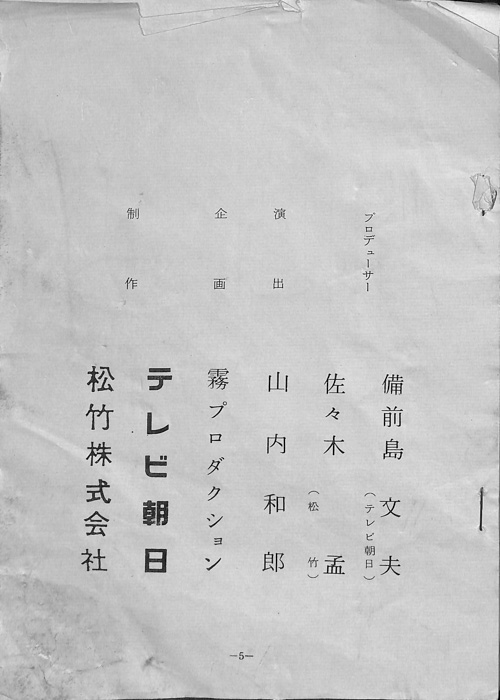 プロデューサー
備前島 文夫
（テレビ朝日）
佐々木 孟
（松竹）
演出
山内和郎
企画
霧プロダクション
制作
テレビ朝日
松竹株式会社
—5—